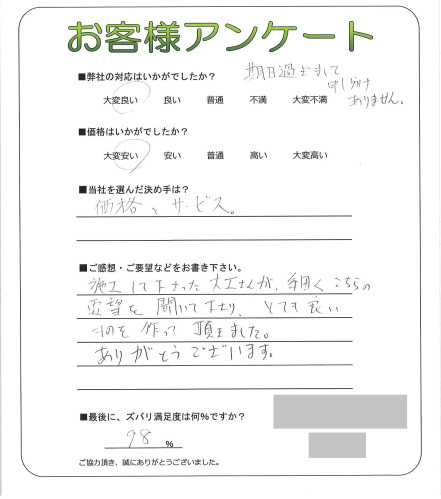 お客様アンケート
■弊社の対応はいかがでしたか？
期日過ぎまして
申し分け
ありません。
大変良い 良い 普通 不満 大変不満
■価格はいかがでしたか？
大変安い 安い 普通 高い 大変高い
■当社を選んだ決め手は？
価格とサービス。
■ご感想・ご要望などをお書き下さい。
施工して下さった大工さんが、手際くこちらの
要望を聞いて下さり、とても良い
ものを作って頂きました。
ありがとうございます。
■最後に、ズバリ満足度は何％ですか？
98 ％
ご協力頂き、誠にありがとうございました。